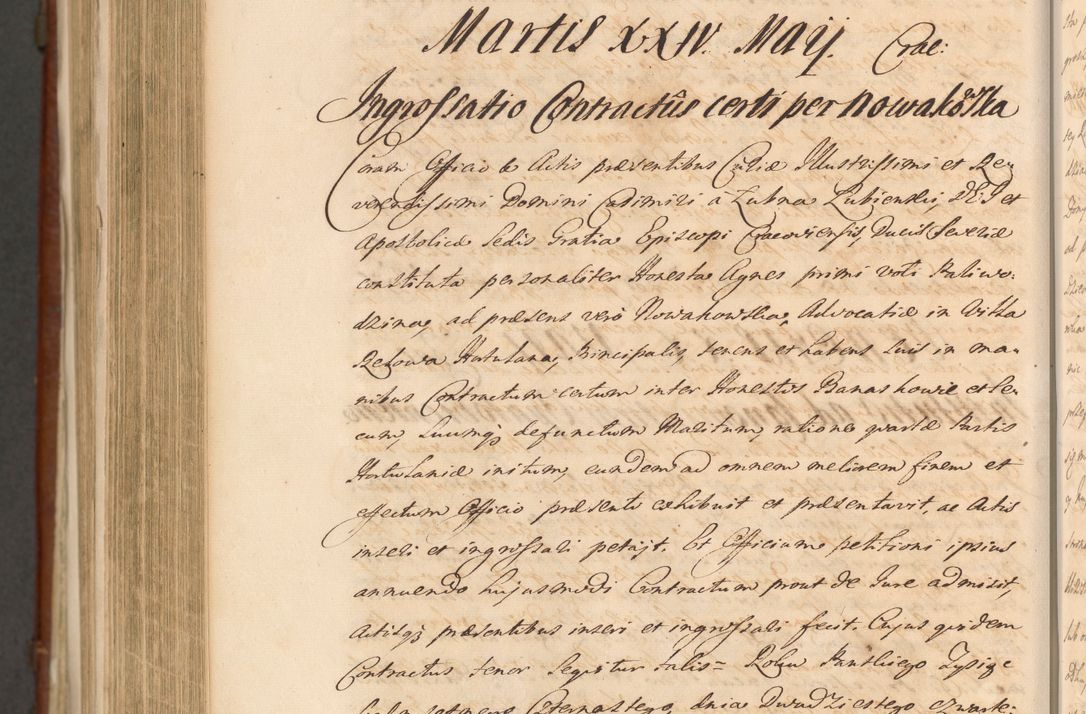 Martis XXIV. Maij. Crac:
Ingrossatio Contractûs certi per Nowakowska
Coram Officio & Actis præsentibus Curiæ Illustrissimi et Re
verendissimi Domini Casimiri a Lubna Lubienski, D. E. I et
Apostolicæ Sedis Gratia Episcopi Cracoviensis, Ducis Severiæ
constituta personaliter Honesta Agnes primi voti Paliwo:
dzina, ad præsens verò Nowakowska, Advocatiæ in Villa
Hatulana, Principalis, tenens et habens suis in ma
nibus Contractum certum inter Honestos Banaskowie et se
cum, Suumq3 defunctum Maritum, ratione quartæ Partis
Hatulaniæ initum, eundem ad omnem meliorem finem et
effectum Officio præsenti exhibuit et præsentavit, ac Actis
inseri et ingrossari petijt. Et Officium petitioni ipsius
annuendo hujusmodi Contractum prout de Jure admisit,
Actisq3 præsentibus inseri et ingrossari fecit. Cujus quidem
Contractus tenor sequitur talis= Roku Panskiego Tysiąc
Czternastego, dnia Dwudziestego czwarte: